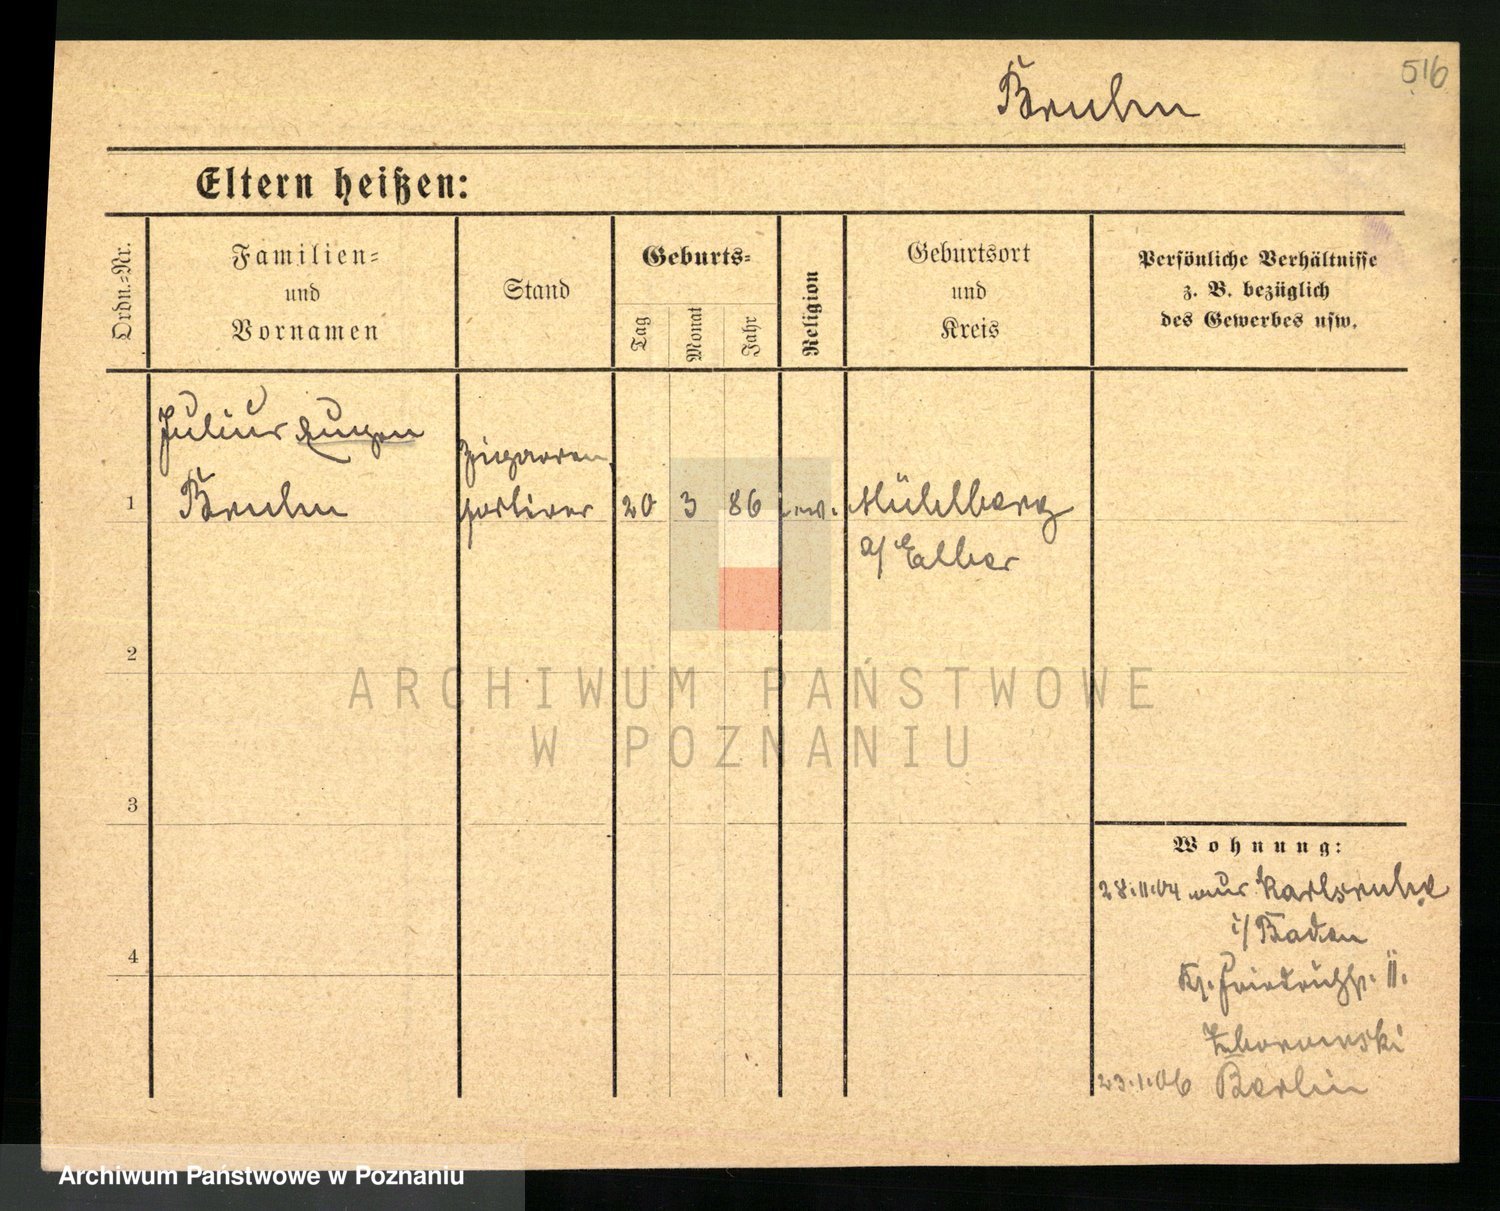 516
Bruhn
Eltern heißen:
Ordn.-Nr.
Familien-
und
Vornamen
Stand
Geburts-
Tag
Monat
Jahr
Religion
Geburtsort
und
Kreis
Persönliche Verhältnisse
z. B. bezüglich
des Gewerbes usw.
Julius Eugen
Zigarren
1 Bruhn sortierer 20 3 86 ev. Mühlberg
a/ Elbe
2
ARCHIWUM PAŃSTWOWE
W POZNANIU
3
Wohnung:
28.11.04 aus Karlsruhe
i/ Baden
4
Kl. Friedrichstr. 11.
Zborowski
23.1.06 Berlin
Archiwum Państwowe w Poznaniu